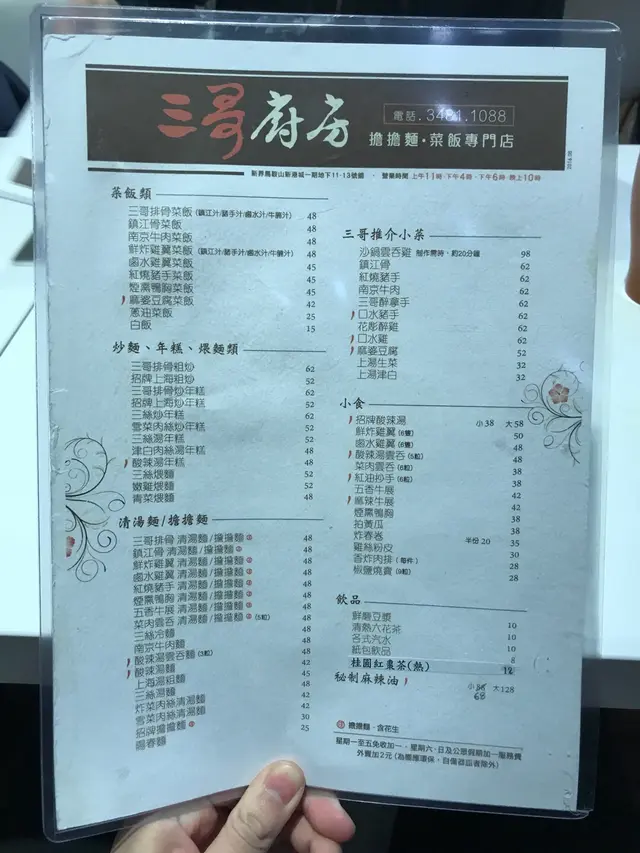 三哥廚房
電話.3481.1088
擔擔麵·菜飯專門店
新界馬鞍山新港城一期地下11-13號舖 · 營業時間 上午11時-下午4時·下午6時-晚上10時
菜飯類
三哥排骨菜飯 (鎮江汁/豬手汁/鹵水汁/牛腩汁) 48
鎮江骨菜飯 48
南京牛肉菜飯 48
鮮炸雞翼菜飯 (鎮江汁/豬手汁/鹵水汁/牛腩汁) 48
鹵水雞翼菜飯 45
紅燒豬手菜飯 45
煙熏鴨胸菜飯 45
麻婆豆腐菜飯 42
蔥油菜飯 25
白飯 15
炒麵、年糕、煨麵類
三哥排骨粗炒 62
招牌上海粗炒 52
三哥排骨炒年糕 62
招牌上海炒年糕 52
三絲炒年糕 62
雪菜肉絲炒年糕 52
三絲湯年糕 52
津白肉絲湯年糕 48
酸辣湯年糕 48
三絲煨麵 52
嫩雞煨麵 52
青菜煨麵 48
清湯麵/擔擔麵
三哥排骨 清湯麵/擔擔麵 48
鎮江骨 清湯麵/擔擔麵 48
鮮炸雞翼 清湯麵/擔擔麵 48
鹵水雞翼 清湯麵/擔擔麵 48
紅燒豬手 清湯麵/擔擔麵 48
煙熏鴨胸 清湯麵/擔擔麵 48
五香牛展 清湯麵/擔擔麵 48
菜肉雲吞 清湯麵/擔擔麵 (5粒) 48
三絲冷麵 48
南京牛肉麵 48
酸辣湯雲吞麵 (3粒) 48
酸辣湯麵 42
上海湯粗麵 48
三絲湯麵 45
炸菜肉絲清湯麵 42
雪菜肉絲清湯麵 42
招牌擔擔麵 30
陽春麵 25
三哥推介小菜
沙鍋雲吞雞 製作需時、約20分鐘 98
鎮江骨 62
紅燒豬手 62
南京牛肉 62
三哥醉拿手 62
口水豬手 62
花彫醉雞 62
口水雞 62
麻婆豆腐 52
上湯生菜 32
上湯津白 32
小食
招牌酸辣湯 小38 大58
鮮炸雞翼 (6隻) 50
鹵水雞翼 (6隻) 48
酸辣湯雲吞 (5粒) 48
菜肉雲吞 (6粒) 38
紅油抄手 (6粒) 38
五香牛展 42
麻辣牛展 42
煙熏鴨胸 42
拍黃瓜 38
炸春卷 38
雞絲粉皮 半份20 35
香炸肉排 (每件) 30
椒鹽燒賣 (9粒) 28
28
飲品
鮮磨豆漿 10
清熱六花茶 10
各式汽水 10
紙包飲品 8
桂圓紅棗茶(熱) 12
秘制麻辣油 小 68 大128
擔擔麵·含花生
星期一至五免收加一·星期六、日及公眾假期加一服務費
外賣加2元 (為響應環保,自備器皿者除外)